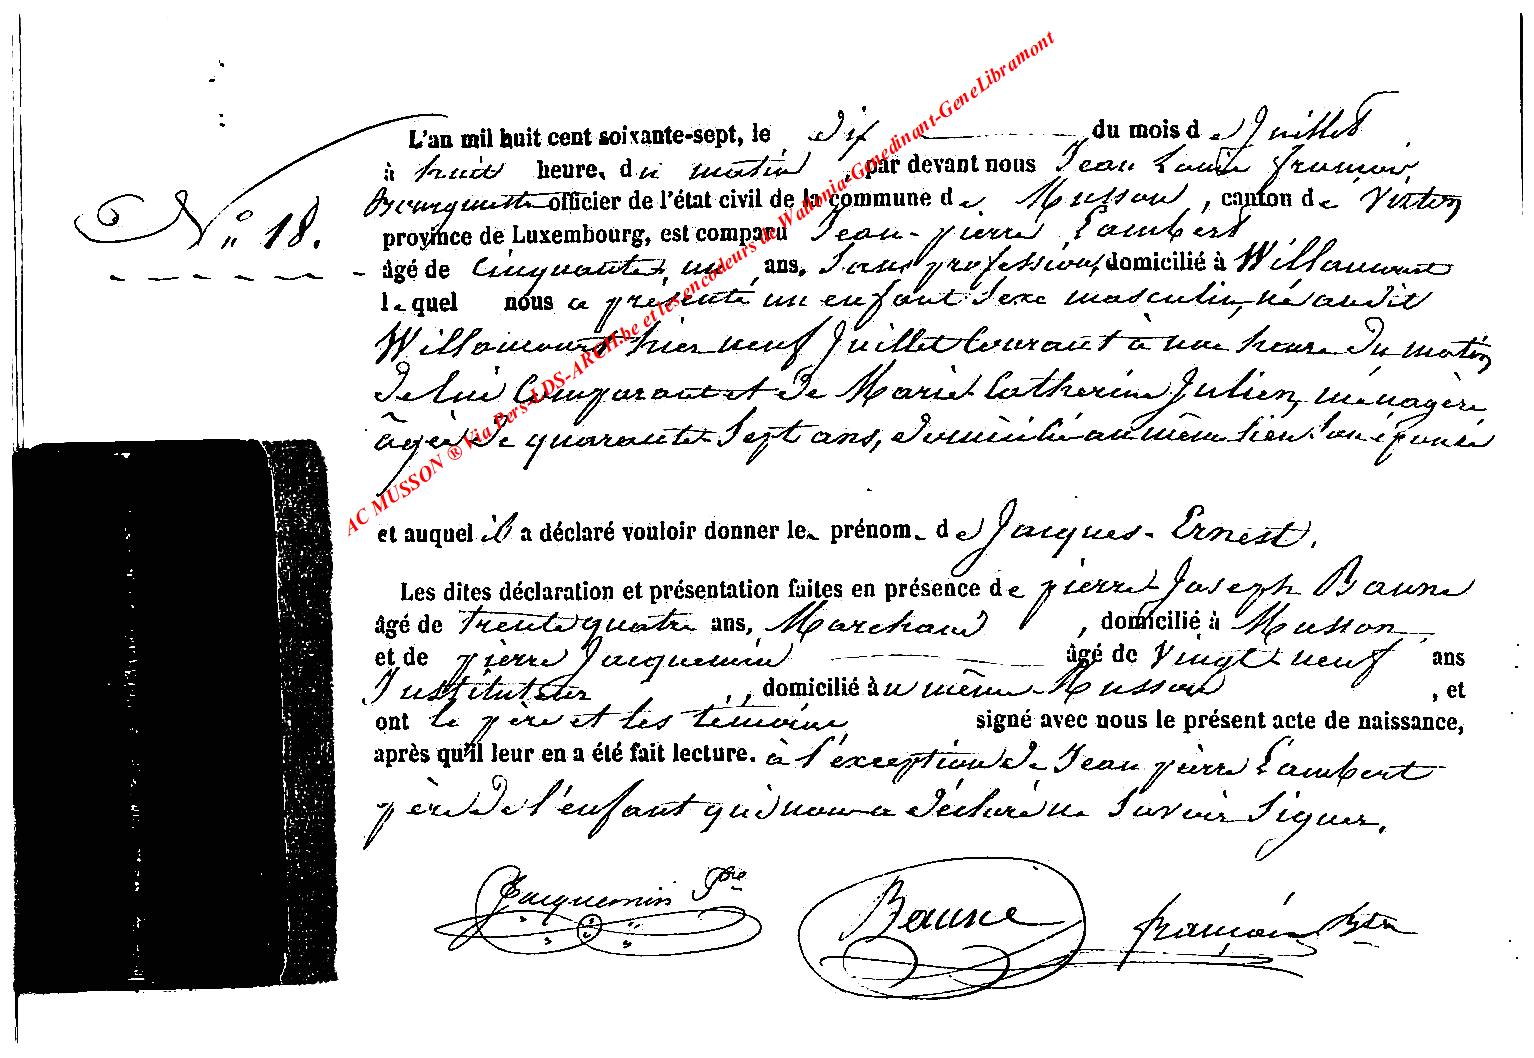 L'an mil huit cent soixante-sept, le dix du mois de Juillet
à huit heures du matin, par devant nous Jean Louis françois
Bourguette officier de l'état civil de la commune de Musson, canton de Virton
N° 18.
province de Luxembourg, est comparu Jean-pierre Lambert
âgé de Cinquante un ans, Sans profession, domicilié à Willancourt
lequel nous a présenté un enfant Sexe masculin, né audit
Willancourt hier neuf Juillet Courant à une heure du matin
de lui Comparant et de Marie Catherine Julien, ménagère
âgée de quarante Sept ans, domiciliée au même lieu Son épouse
et auquel il a déclaré vouloir donner les prénoms de Jacques-Ernest.
Les dites déclaration et présentation faites en présence de pierre Joseph Baune
âgé de trente quatre ans, Marchand, domicilié à Musson,
et de pierre Jacquemin âgé de Vingt neuf ans
Instituteur, domicilié au même Musson, et
ont le père et les témoins signé avec nous le présent acte de naissance,
après qu'il leur en a été fait lecture. à l'exception de Jean pierre Lambert
père de l'enfant qui nous a déclaré ne Savoir Signer.
Jacquemin Pre Baune françois
AC MUSSON ® Via Pers-LDS-ARCH.be et les encodeurs de Wallonia-Genedinant-GeneLibramont